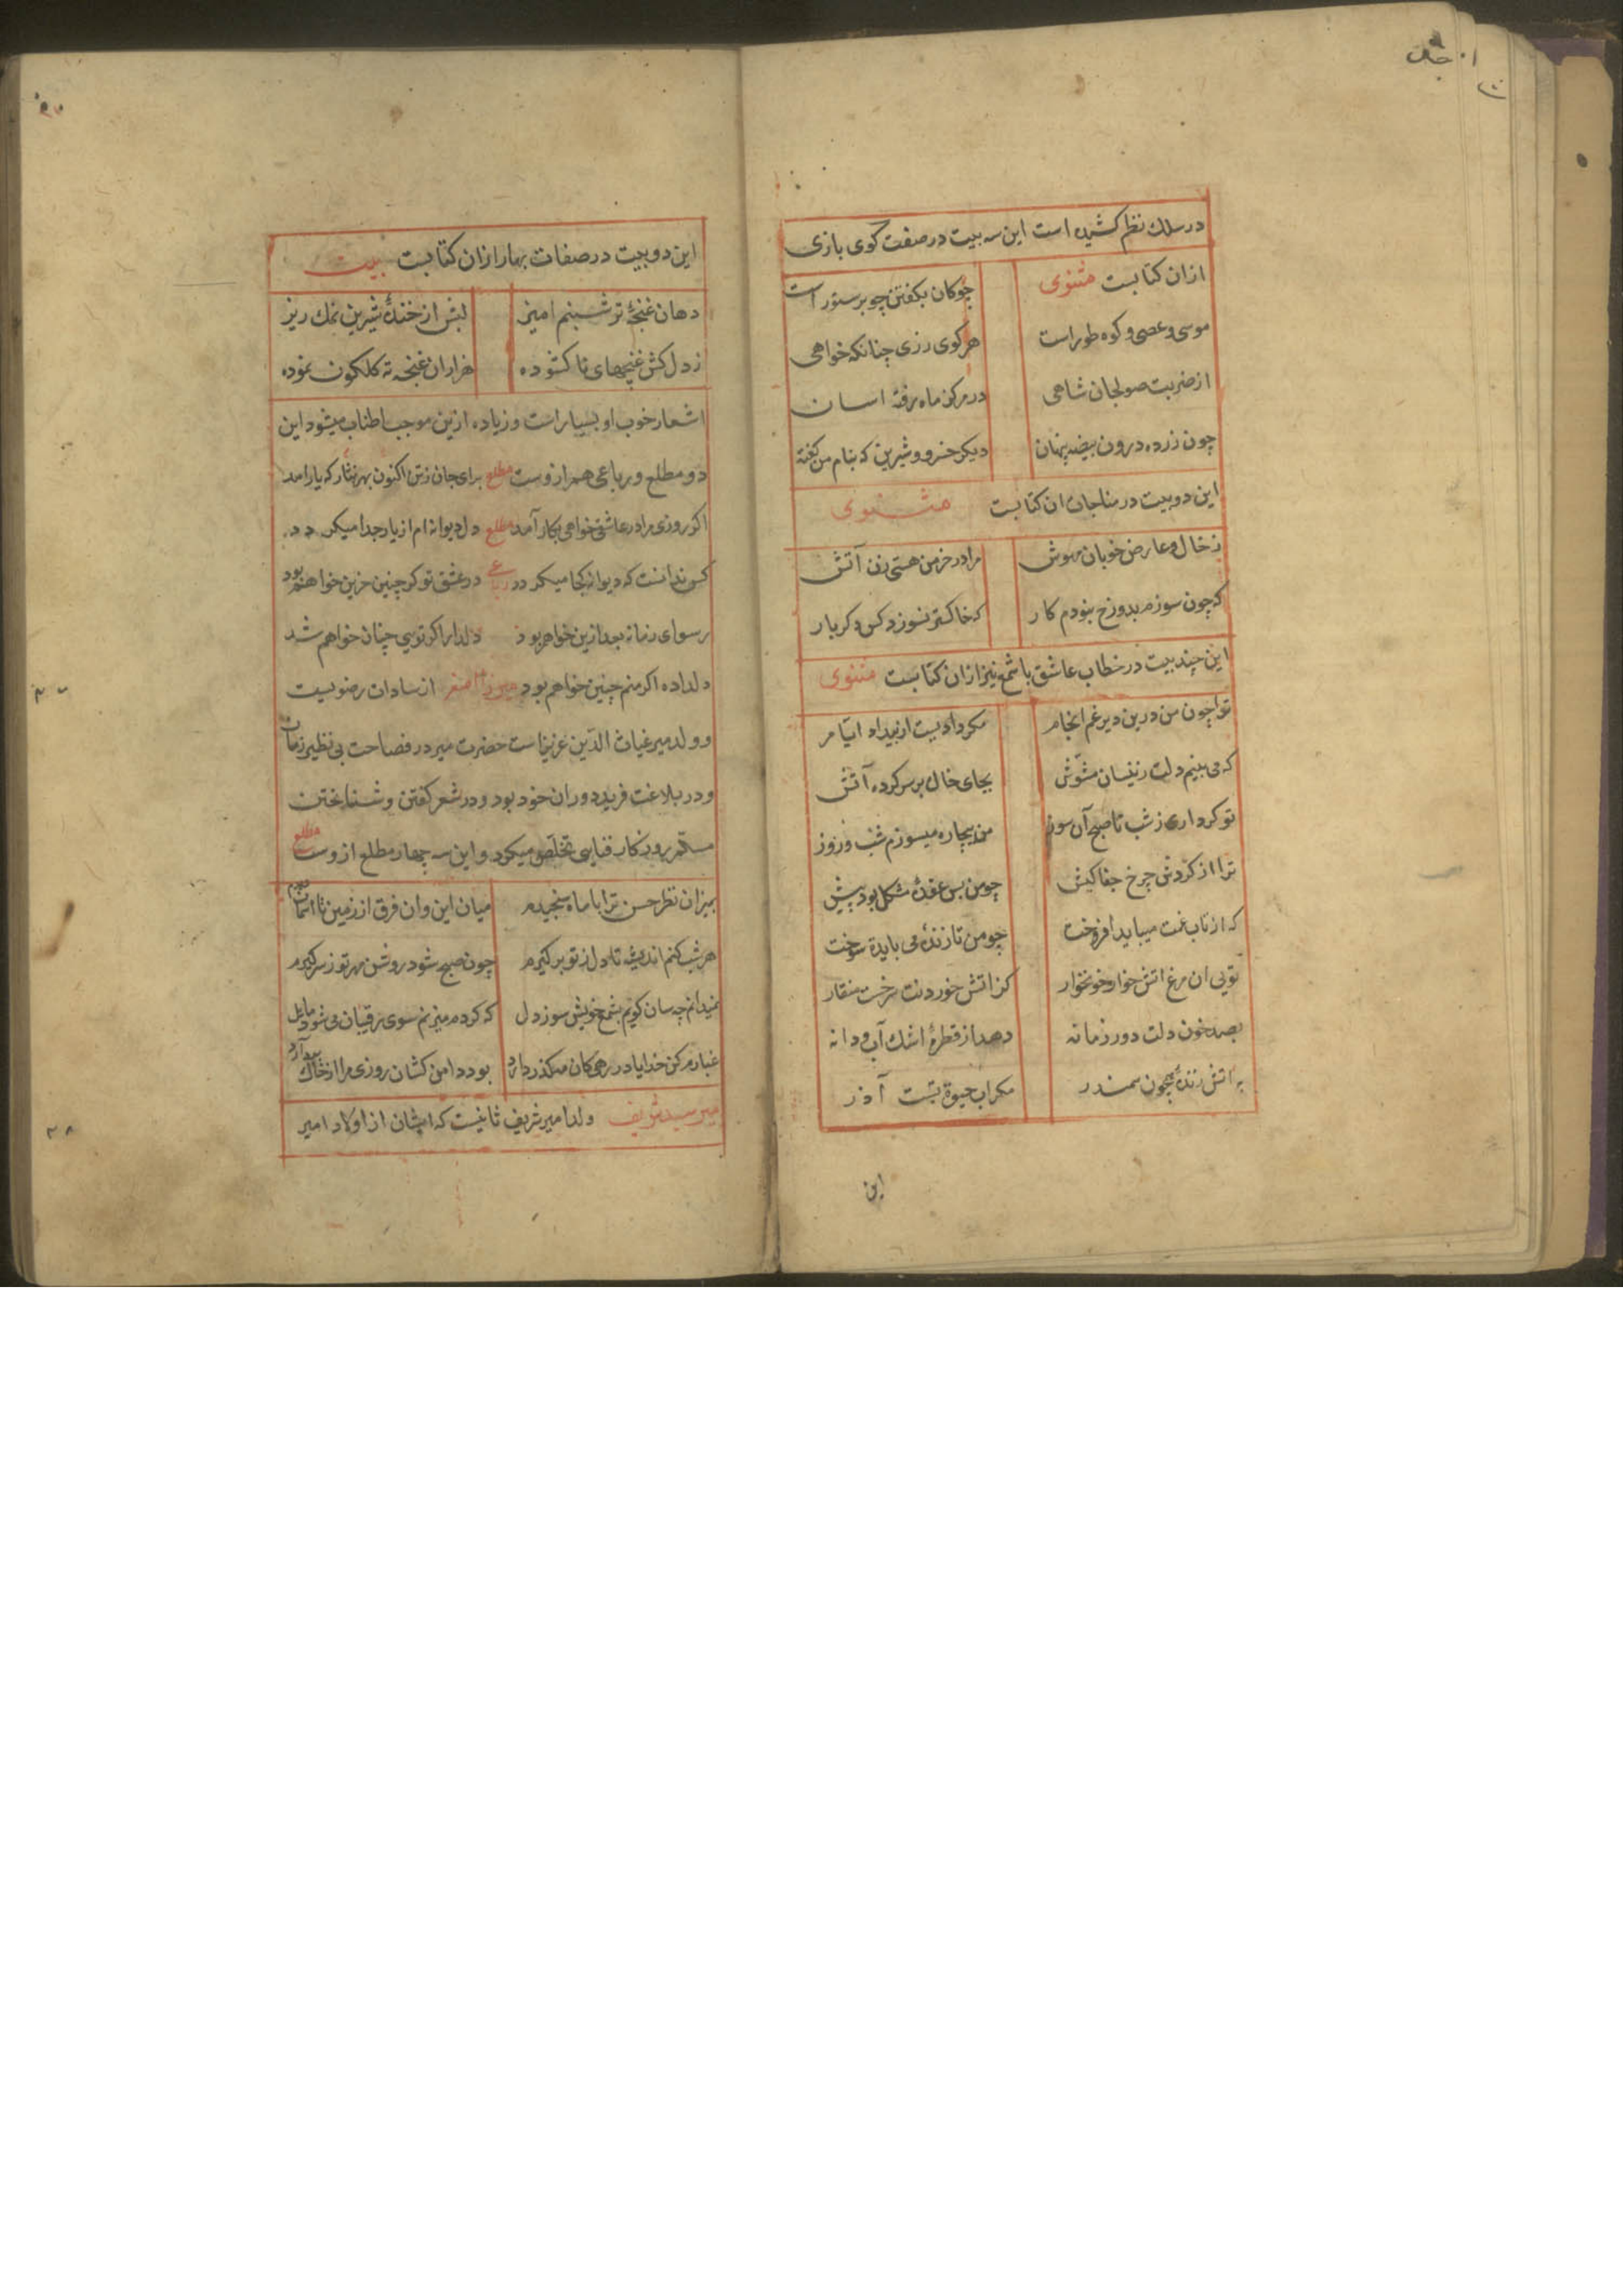 در سلك نظم كشیده است این سه بیت در صفت كوی بازی
ازان كتابست مثنوی چوكان بكفتن چو برستور است
موسی و عصی و كوه طور است هر كوی زری چنانكه خواهی
از ضربت صولجان شاهی در مركز ماه رفته اسان
چون زرده درون بیضه پنهان دیكر خسرو و شیرین كه بنام من كفته
این دو بیت در مناجات ان كتابست مثنوی
ز خال و عارض خوبان مهوش مرا در خرمن هستی زن آتش
كه چون سوزم بدوزخ نبودم كار كه خاكستر نسوزد كس دكر بار
این چند بیت در خطاب عاشق با شمع نیز ازان كتابست مثنوی
تو اچون من درین دیر غم انجام مكر دادیست از بیداد ایام
كه می بینم دلت زینسان مشوش بجای خال بر سر كرده آتش
تو كر داری ز شب تا صبح آن سوز من بیچاره میسوزم شب و روز
ترا از كردش چرخ جفا كیش چو من بس عقدۀ مشكل بود پیش
كه از تاب غمت میباید افروخت چو من تا زندۀ می بایدت سوخت
تویی ان مرغ اتش خوار خونخوار كز اتش خوردنت سرخست منقار
بصد خون دلت دور زمانه دهد از قطرۀ اشك آب و دانه
به اتش زندۀ همچون سمندر مكر اب حیوة تست آذر
این
این دو بیت در صفات بهار ازان كتابست بیت
دهان غنچۀ تر شبنم امیز لبش از خندۀ شیرین نمك ریز
ز دل كش غنچهای نا كشوده هزاران غنچه ته كلكون نموده
اشعار خوب او بسیار است و زیاده ازین موجب اطناب میشود این
دو مطلع و رباعی هم ازوست مطلع برای جان زتن اكنون بهر نثار كه یار امد
اكر روزی مرا در عاشقی خواهی بكار آمد مطلع دل دیوانه ام از یار جدا میكردد
كس ندانست كه دیوانه كجا میكردد رباعی در عشق تو كر چنین حزین خواهم بود
رسوای زمانه بعد ازین خواهم بود دلدار اكر تویی چنان خواهم شد
دلداده اكر منم چنین خواهم بود میرزا اصغر از سادات رضویست
و ولد میر غیاث الدین عزیز است حضرت میر در فصاحت بی نظیر زمان
و در بلاغت فرید دوران خود بود و در شعر كفتن و شناختن
مسلم روزكار فنایی تخلص میكرد و این سه چهار مطلع ازوست مطلع
بمیزان نظر حسن ترا با ماه سنجیدم میان این وان فرق از زمین تا اسمان دیدم
هر شب كنم اندیشه تا دل ز تو بر كیرم چون صبح شود روشن مهر تو ز سر كیرم
نمیدانم چه سان كویم بشمع خویش سوز دل كه كر دم میزنم سوی رقیبان می شود مایل
غبارم كن خدایا در رهی كان میكذر دارد بود دامن كشان روزی مرا از خاك بردارد
میر سید شریف ولد امیر شریف ثانیست كه ایشان از اولاد امیر